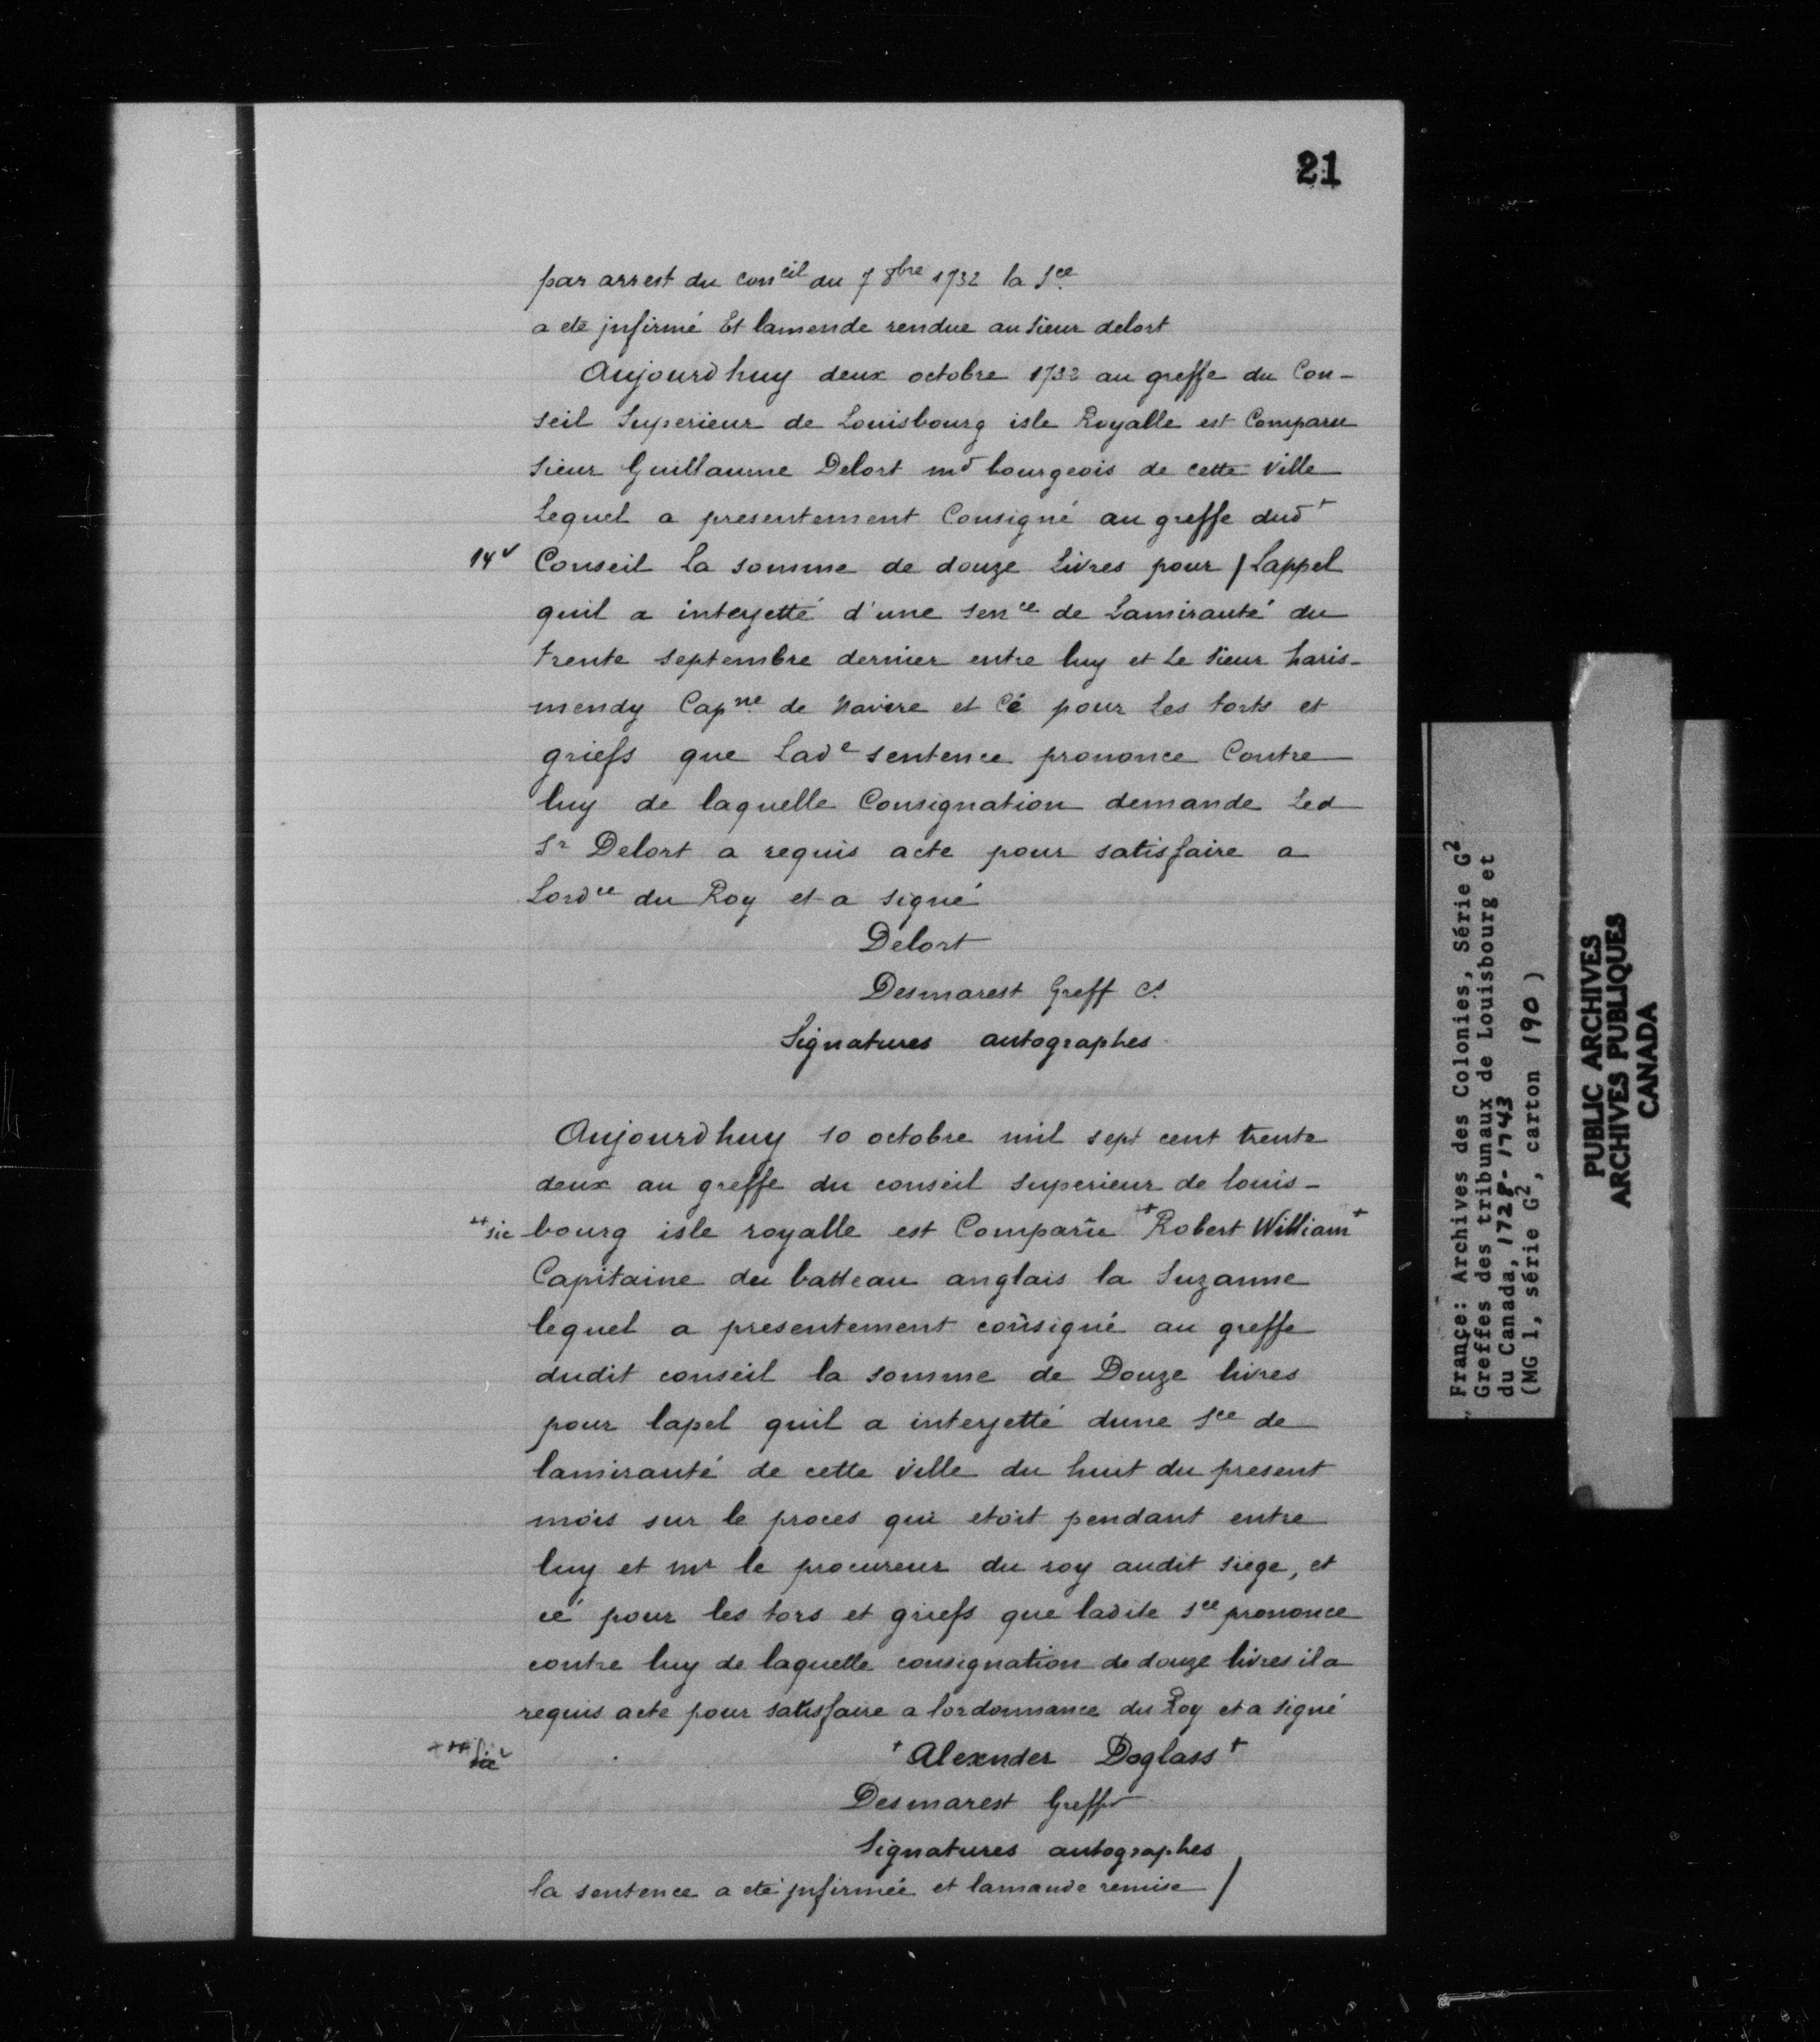 21
par arrest du con^eil du 7 8bre 1732 la S^ce
a eté jnfirmé Et lamende rendue au Sieur delort
Aujourdhuy deux octobre 1732 au greffe du Con-
seil Superieur de Louisbourg isle Royalle est Comparu
Sieur Guillaume Delort m^d bourgeois de cette Ville
Lequel a presentement Consigné au greffe dud^t
14v Conseil la somme de douze Livres pour / Lappel
quil a interjetté d'une sen^ce de Lamirauté du
trente septembre dernier entre luy et Le Sieur haris-
mendy Cap^ne de Navire et Cé pour Les torts et
griefs que Lad^e sentence prononce Contre
luy de laquelle Consignation demande Led
S^r Delort a requis acte pour satisfaire a
Lord^ce du Roy et a signé
Delort
Desmarest Greff
Signatures autographes
Aujourdhuy 10 octobre mil sept cent trente
deux au greffe du conseil superieur de louis-
++sic bourg isle royalle est Comparu +Robert William+
Capitaine du batteau anglais la Suzanne
lequel a presentement consigné au greffe
dudit conseil la somme de Douze livres
pour lapel quil a interjetté dune S^ce de
lamirauté de cette ville du huit du present
mois sur le proces qui etoit pendant entre
luy et M^r le procureur du roy audit siege, et
cé pour les tors et griefs que ladite s^ce prononce
contre luy de laquelle consignation de douze livres il a
requis acte pour satisfaire a lordonnance du Roy et a signé
+++sic +Alexnder Doglass+
Desmarest Greffr
Signatures autographes
la sentence a eté jnfirmée et lamande remise /
France: Archives des Colonies, Série G²
Greffes des tribunaux de Louisbourg et
du Canada, 1728-1743
(MG 1, série G², carton 190)
PUBLIC ARCHIVES
ARCHIVES PUBLIQUES
CANADA